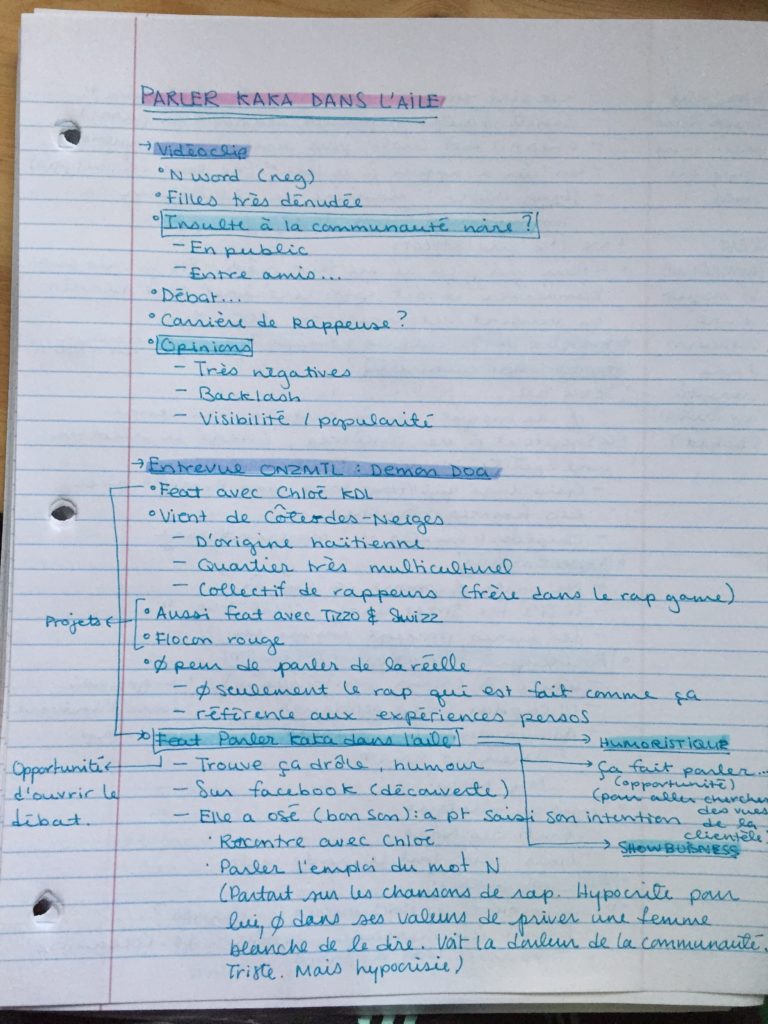 PARLER KAKA DANS L'AILE
→ Vidéoclip
° N word (neg)
° Filles très dénudée
° Insulte à la communauté noire ?
– En public
– Entre amis...
° Débat...
° Carrière de rappeuse ?
° Opinions
– Très négatives
– Backlash
– Visibilité / popularité
→ Entrevue ONZMTL : Demon Dog
° Feat avec Chloé KDL
° Vient de Côte-des-Neiges
– D'origine haïtienne
– Quartier très multiculturel
– Collectif de rappeurs (frère dans le rap game)
Projets
° Aussi feat avec Tizzo & Shwizz
° Flocon rouge
° Ø peur de parler de la réelle
– Ø seulement le rap qui est fait comme ça
– référence aux expériences persos
° Feat Parler kaka dans l'aile → HUMORISTIQUE
Opportunité d'ouvrir le débat.
– Trouve ça drôle, humour
→ ça fait parler...
(opportunité)
(pour aller chercher des vues de la clientèle)
– Sur facebook (découverte)
– Elle a osé (bon son) : a pt saisi son intention
→ SHOWBUISNESS
· Rencontre avec Chloé
· Parler l'emploi du mot N
(Partout sur les chansons de rap. Hypocrite pour
lui, Ø dans ses valeurs de priver une femme
blanche de le dire. Voit la douleur de la communauté.
Triste. Mais hypocrisie)